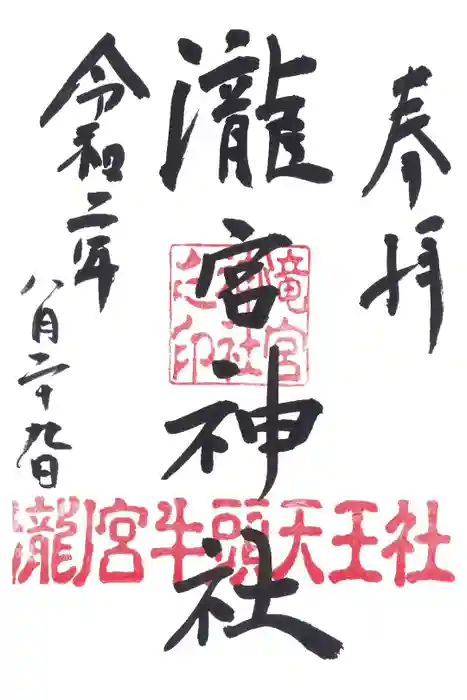 奉拝
瀧宮神社
竜宮
神社
之印
瀧宮牛頭天王社
令和二年
八月二十九日